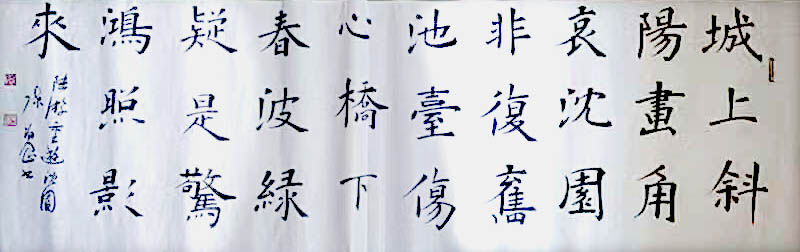 城上斜
陽畫角
哀沈園
非復舊
池臺傷
心橋下
春波緑
疑是驚
鴻照影
來
陸游重遊沈園